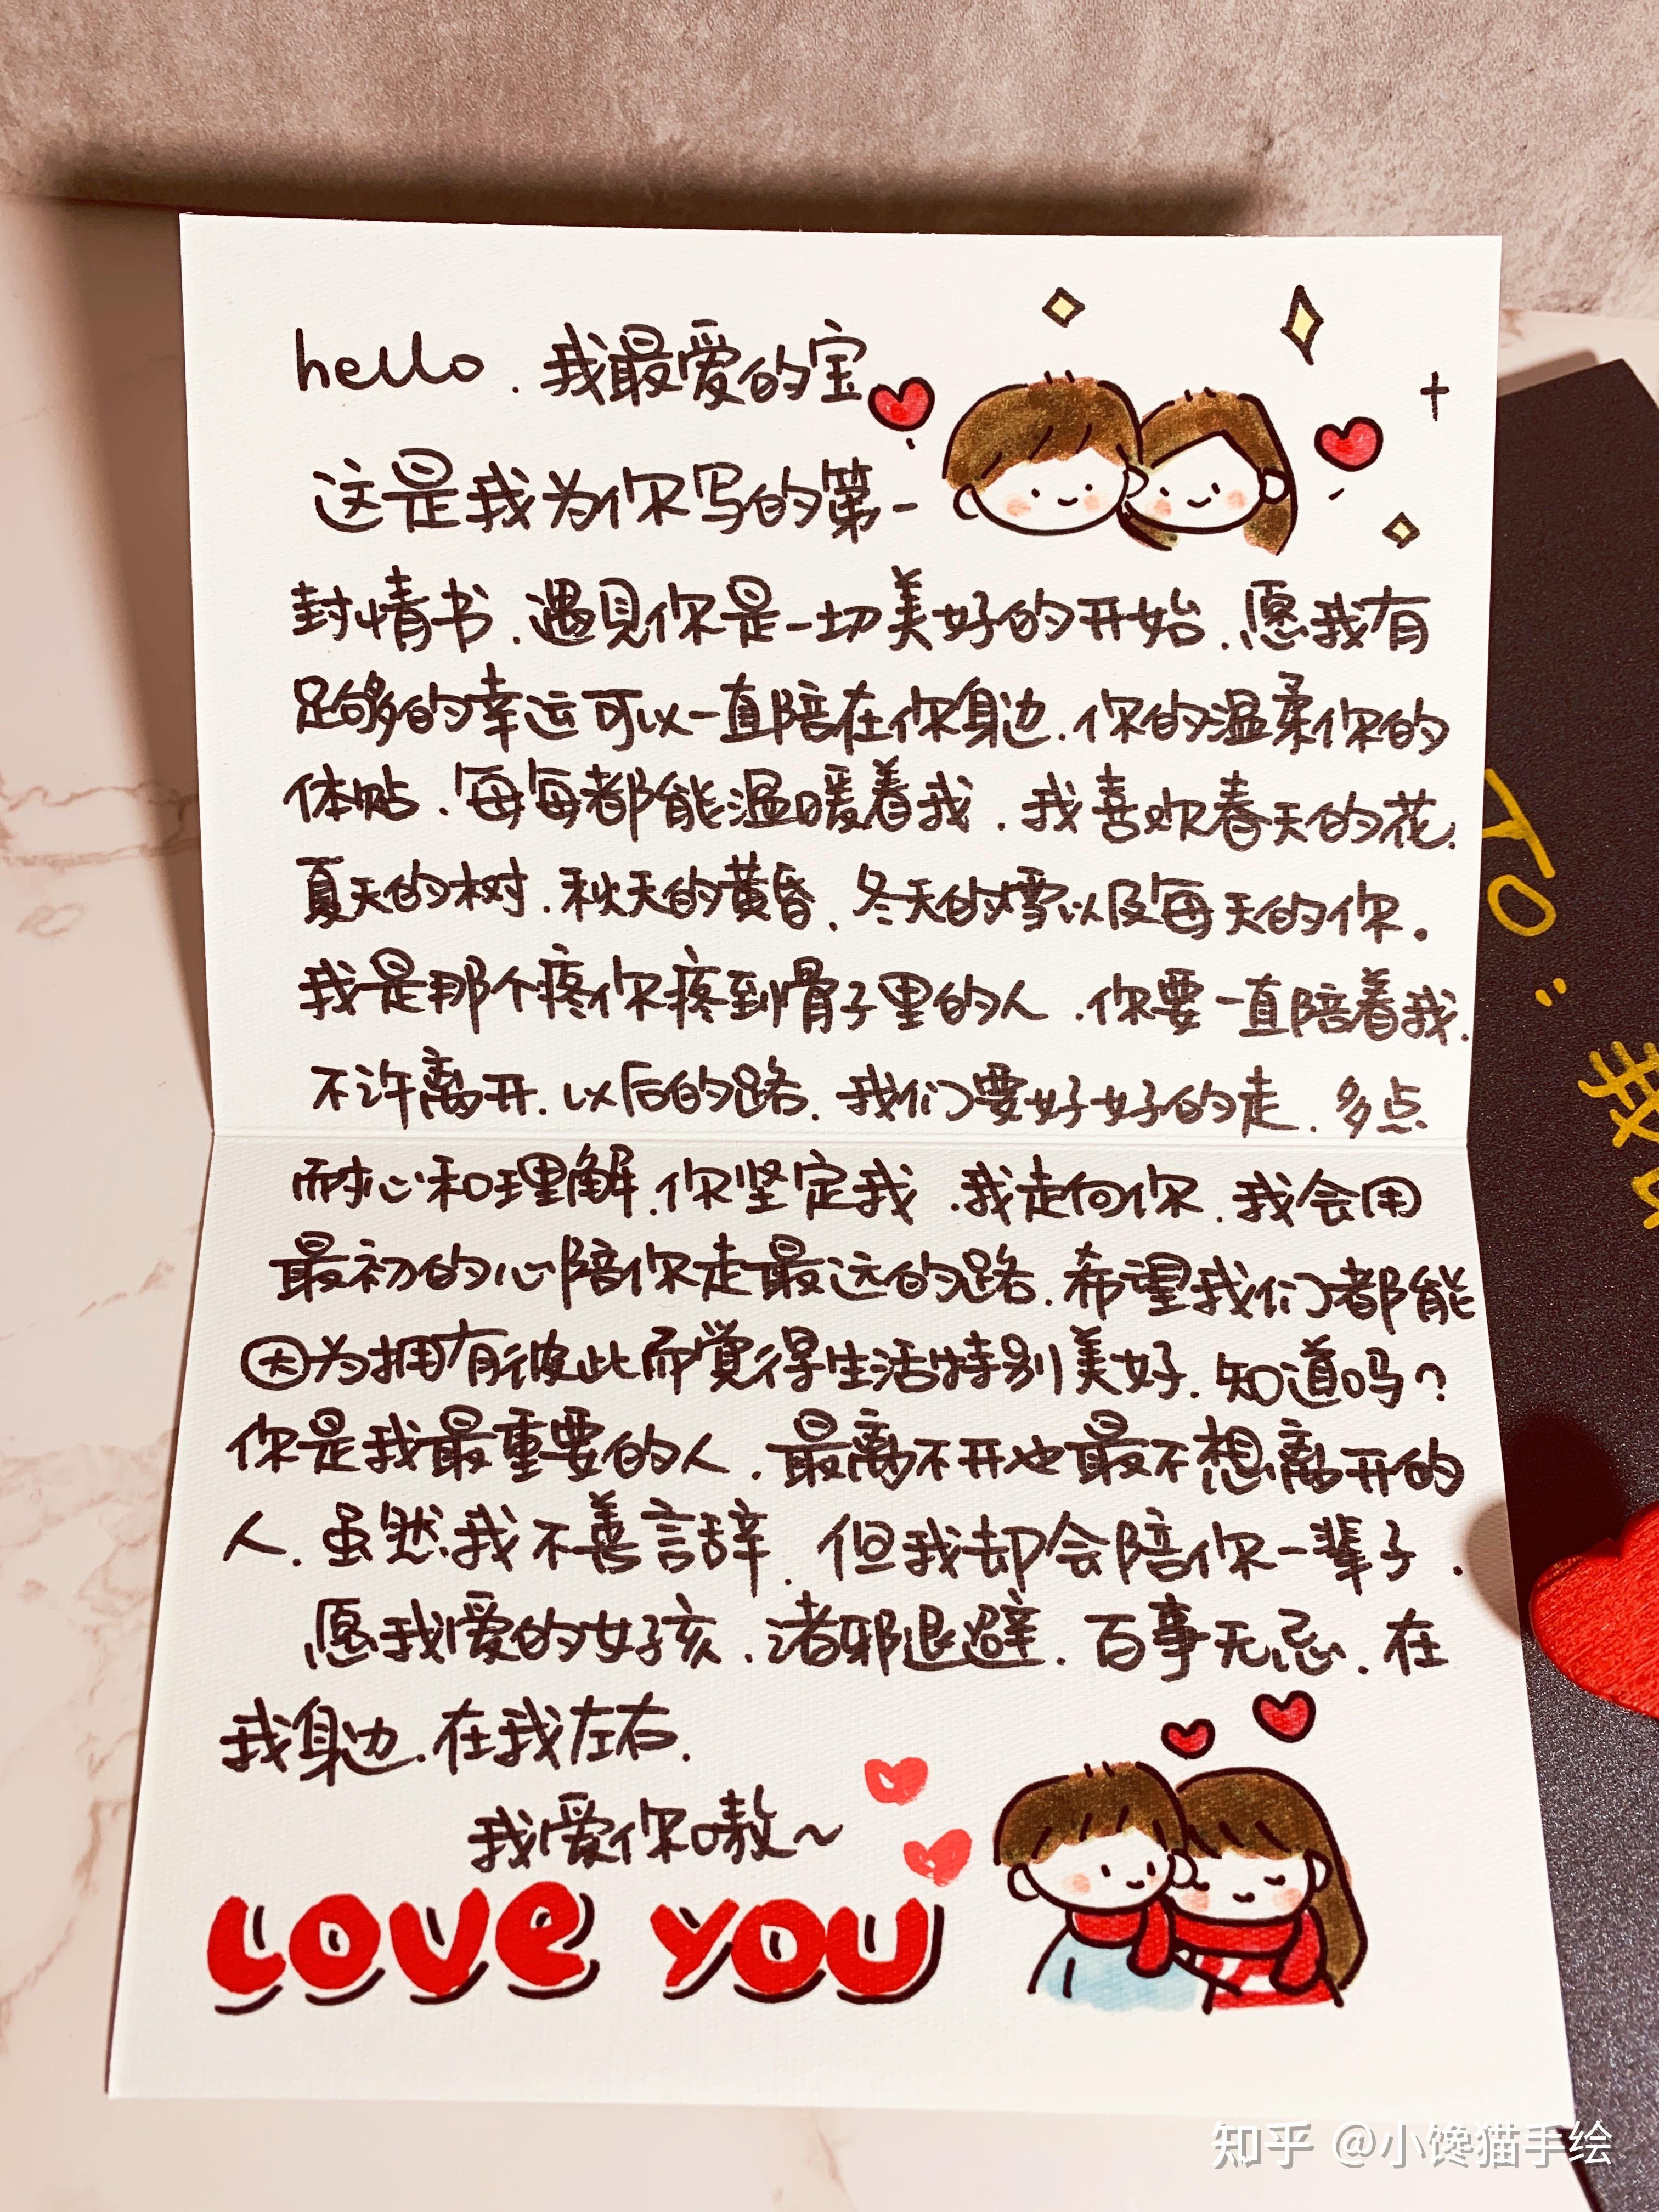 hello.我最爱的宝
这是我为你写的第一
封情书.遇见你是一切美好的开始.愿我有
足够的幸运可以一直陪在你身边.你的温柔你的
体贴.每每都能温暖着我.我喜欢春天的花.
夏天的树.秋天的黄昏.冬天的雪以及每天的你。
我是那个疼你疼到骨子里的人.你要一直陪着我.
不许离开.以后的路.我们要好好的走.多点
耐心和理解.你坚定我.我走向你.我会用
最初的心陪你走最远的路.希望我们都能
因为拥有彼此而觉得生活特别美好.知道吗?
你是我最重要的人.最离不开也最不想离开的
人.虽然我不善言辞.但我却会陪你一辈子.
愿我爱的女孩.诸邪退避.百事无忌.在
我身边.在我左右.
我爱你嗷~
LOVE YOU
TO:
我
知乎 @小馋猫手绘